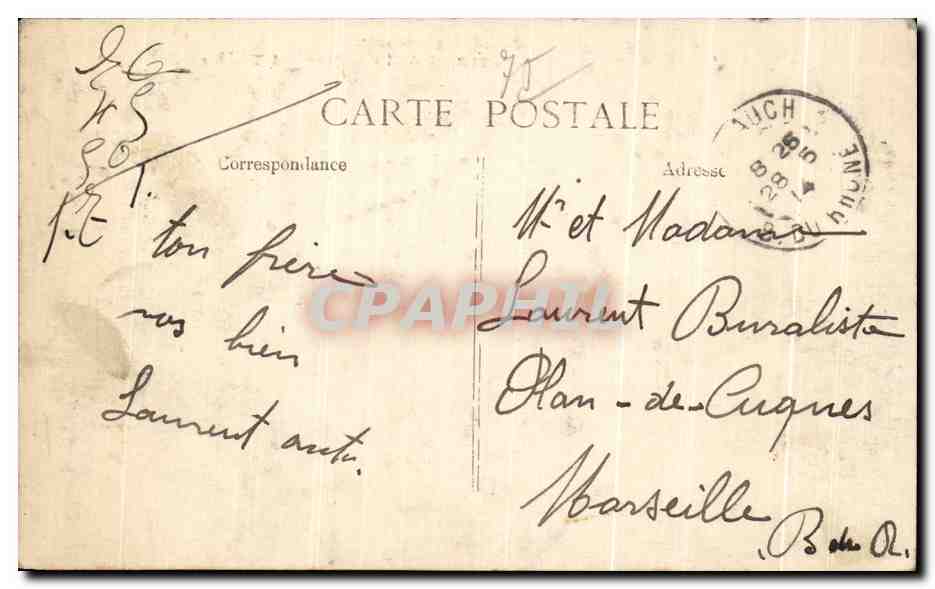 75
CARTE POSTALE
Correspondance
Adresse
AUCH
DU RHÔNE
ton frère
vas bien
Laurent
Mr et Madame
Laurent Buraliste
Plan-de-Cuques
Marseille
B du R.
CPAPHIL